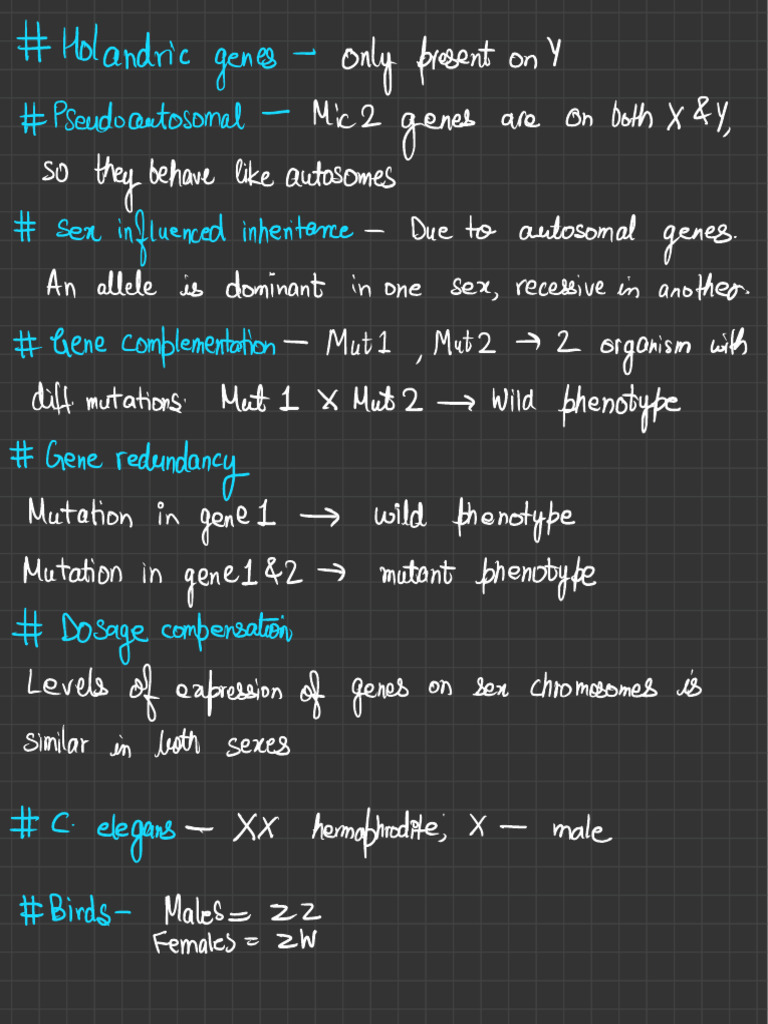 # Holandric genes - only present on Y
# Pseudoautosomal - Mic2 genes are on both X & Y,
so they behave like autosomes
# Sex influenced inheritance - Due to autosomal genes.
An allele is dominant in one sex, recessive in another.
# Gene complementation - Mut 1, Mut 2 → 2 organism with
diff. mutations. Mut 1 X Mut 2 → Wild phenotype
# Gene redundancy
Mutation in gene 1 → wild phenotype
Mutation in gene 1 & 2 → mutant phenotype
# Dosage compensation
Levels of expression of genes on sex chromosomes is
similar in both sexes
# C. elegans - XX hermaphrodite; X - male
# Birds - Males = ZZ
Females = ZW